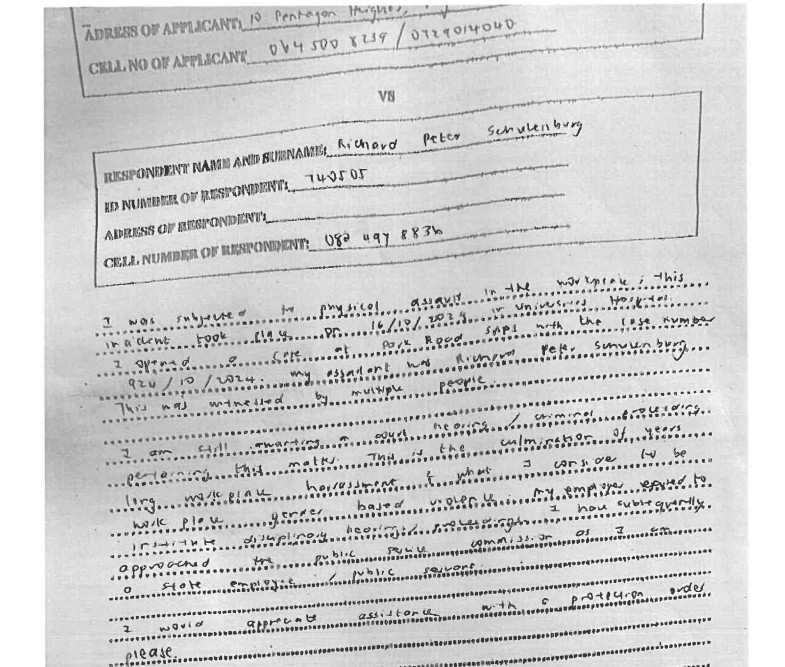 ADRESS OF APPLICANT: 10 Pentagon Heights,
CELL NO OF APPLICANT 064 500 8259 / 0729014040
VS
RESPONDENT NAME AND SURNAME: Richard Peter Schulenburg
ID NUMBER OF RESPONDENT: 740505
ADRESS OF RESPONDENT:
CELL NUMBER OF RESPONDENT: 082 497 8836
I was subjected to physical assault in the workplace ; this
incident took place on 16/10/2024 in Universitas Hospital.
I opened a case at Park Road SAPS with the case number
924/10/2024. my assailant was Richard Peter Schulenburg
This was witnessed by multiple people.
I am still awaiting a court hearing / criminal proceeding
pertaining this matter. This is the culmination of years
long workplace harrassment & what I consider to be
work place gender based violence. my employer refused to
institute disciplinary hearings/ proceedings. I have subsequently
approached the public service commission as I am
a state employee / public servant.
I would appreciate assistance with a protection order
please.